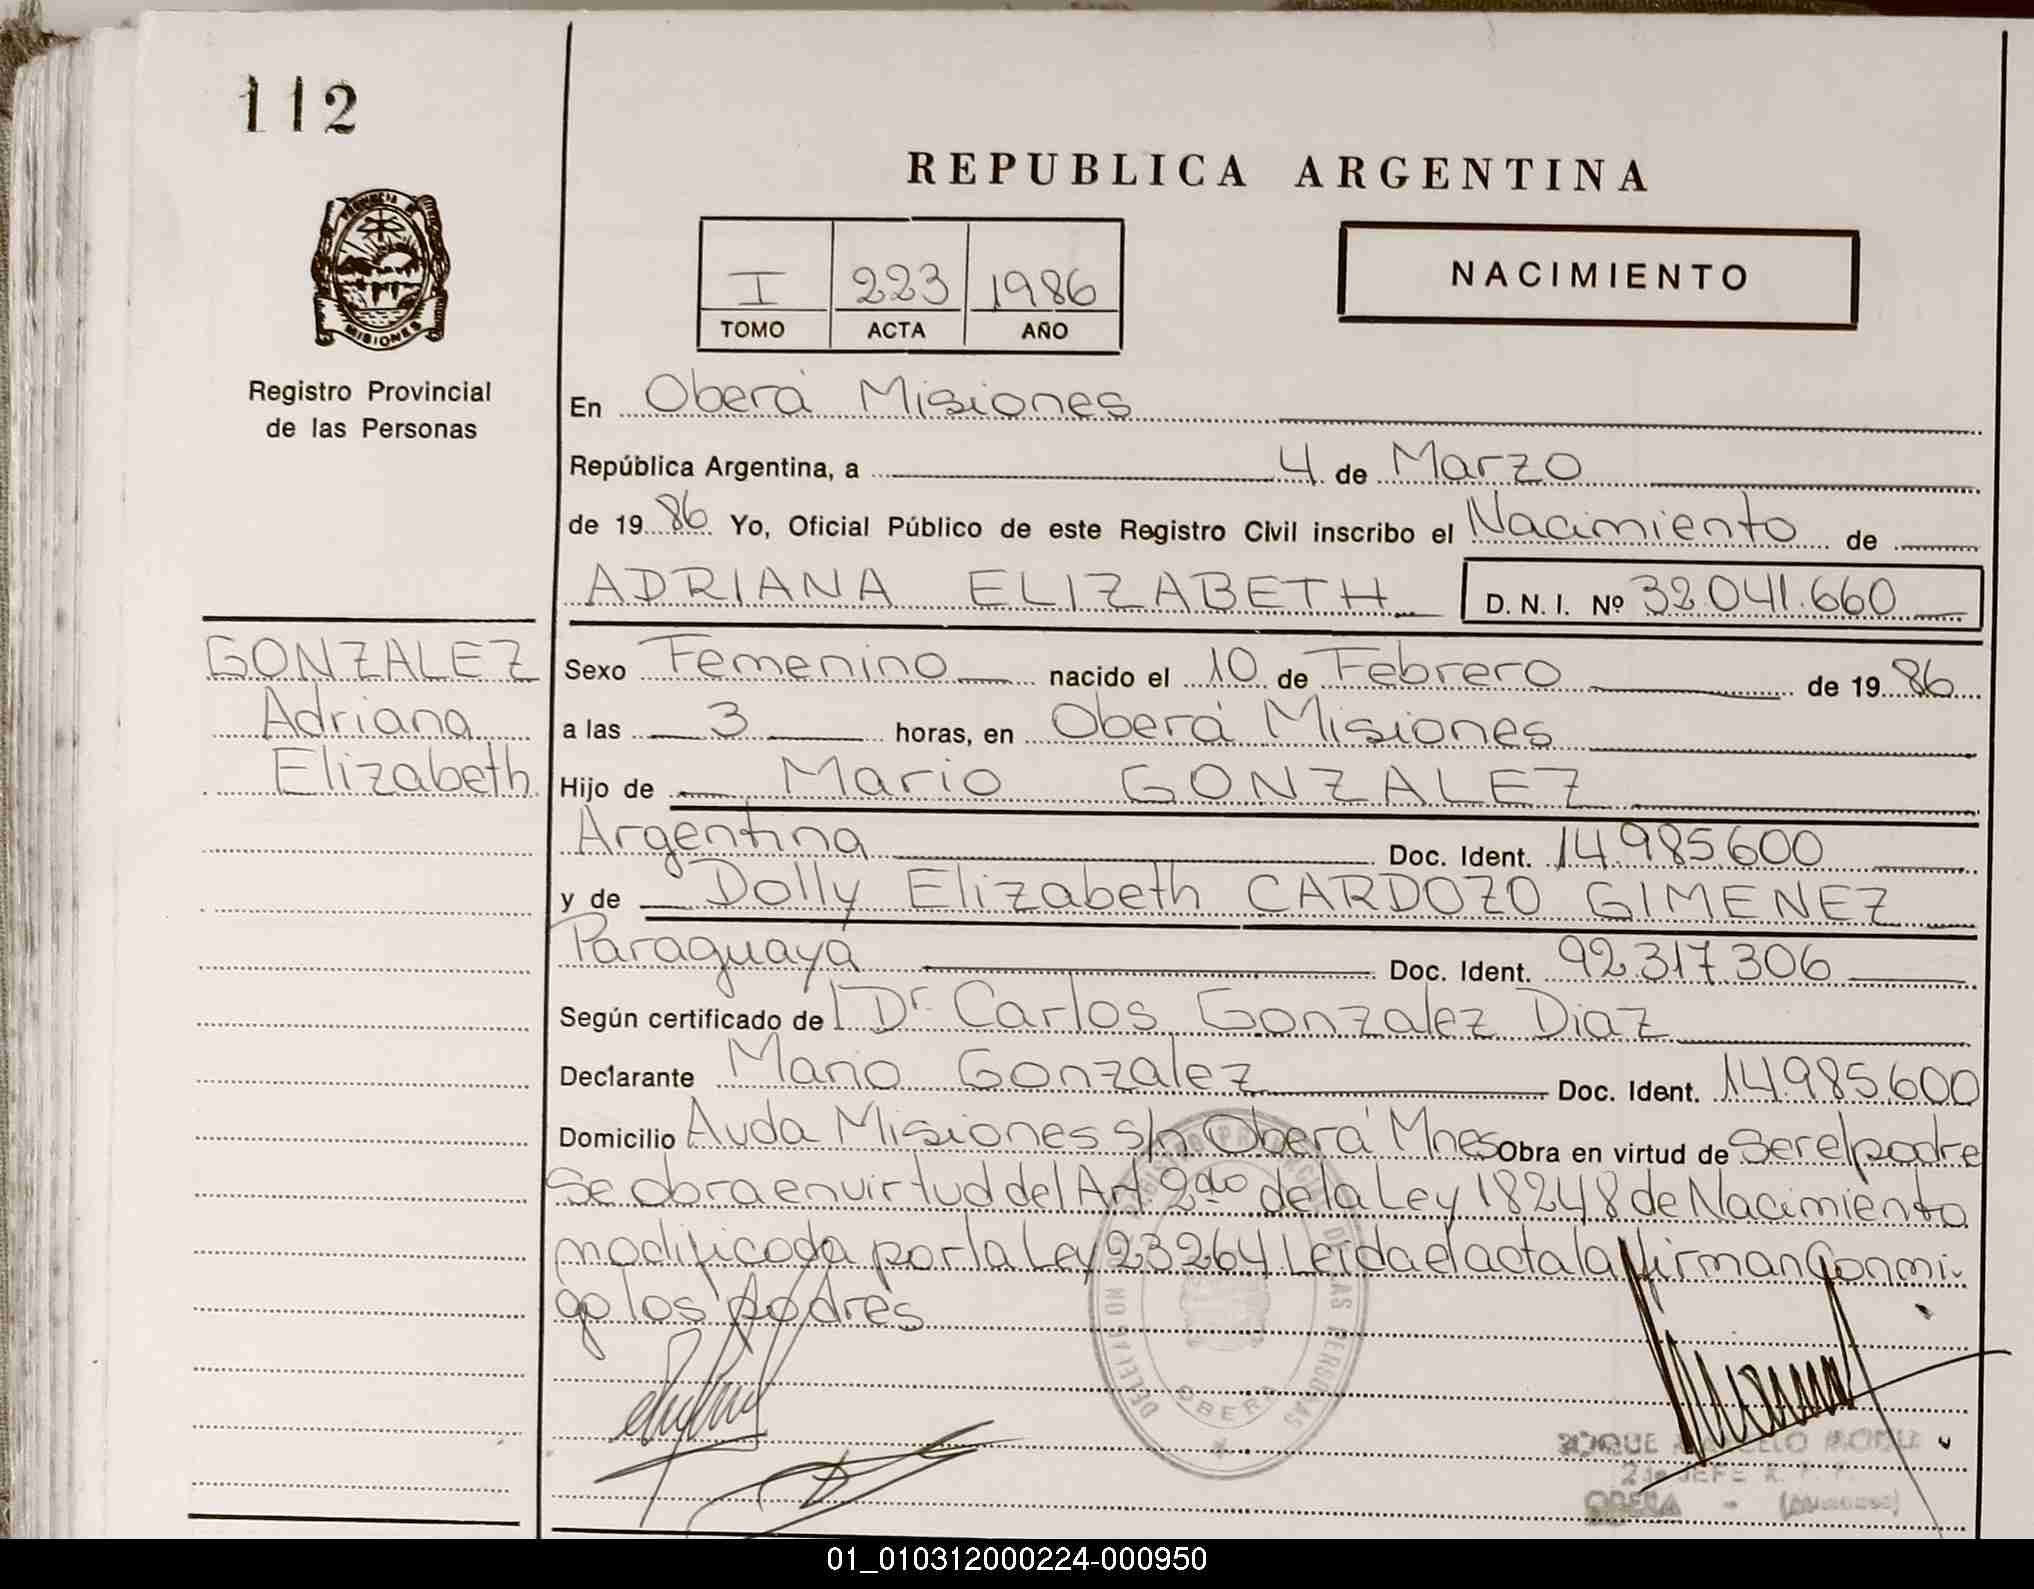 112
REPUBLICA ARGENTINA
PROVINCIA DE
MISIONES
I 223 1986
TOMO ACTA AÑO
NACIMIENTO
Registro Provincial
de las Personas
En Oberá Misiones
República Argentina, a 4 de Marzo
de 19 86 Yo, Oficial Público de este Registro Civil inscribo el Nacimiento de
ADRIANA ELIZABETH D. N. I. Nº 32.041.660
GONZALEZ
Adriana
Elizabeth
Sexo Femenino nacido el 10 de Febrero de 19 86
a las 3 horas, en Oberá Misiones
Hijo de Mario GONZALEZ
Argentina Doc. Ident. 14.985.600
y de Dolly Elizabeth CARDOZO GIMENEZ
Paraguaya Doc. Ident. 92.317.306
Según certificado de Dr Carlos Gonzalez Diaz
Declarante Mario Gonzalez Doc. Ident. 14.985.600
Domicilio Avda Misiones s/n Oberá Mnes Obra en virtud de ser el padre
Se obra en virtud del Art 2do de la Ley 18248 de Nacimiento
modificada por la Ley 23264 Leida el acta la firman Conmi-
go los padres
OBERA
2do JEFE R. P. P.
OBERA - (Misiones)
01_010312000224-000950